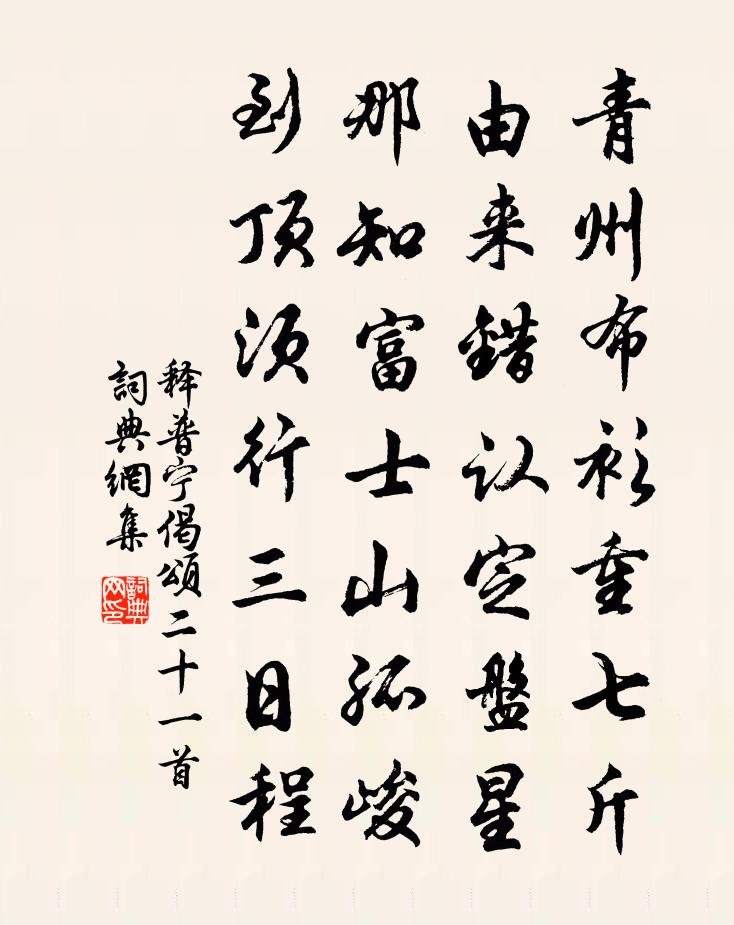 青州布衫重七斤
由来錯认定盤星
那知富士山孤峻
到顶须行三日程
释普宁偈頌二十一首
詞典網集
詞典
网印